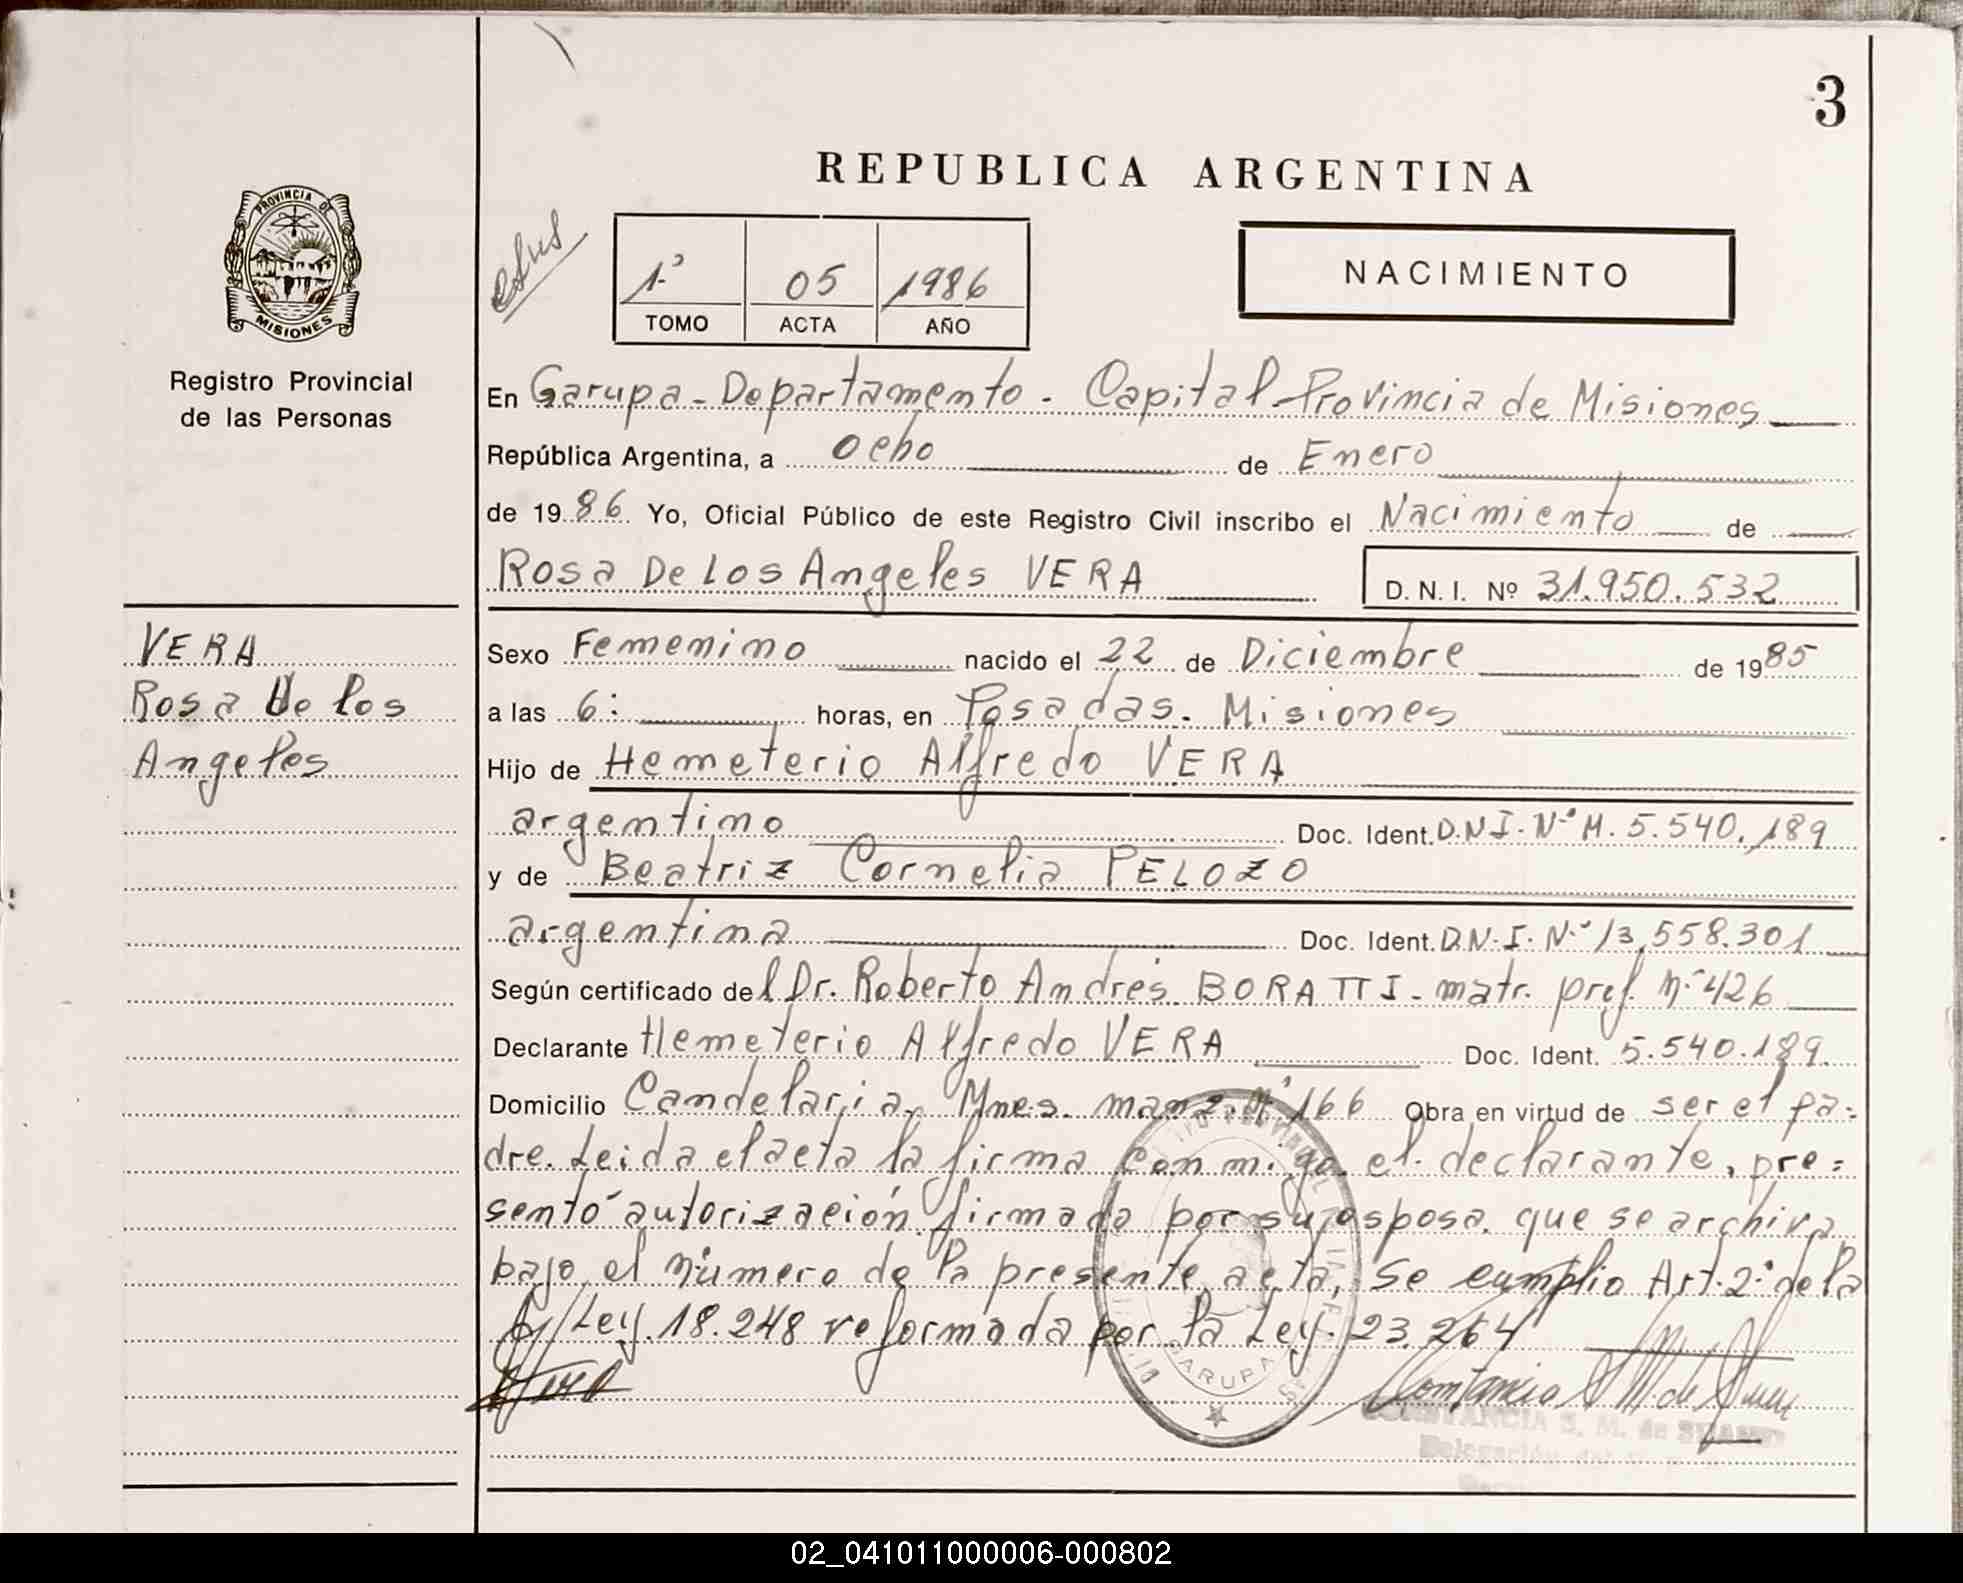 3
REPUBLICA ARGENTINA
PROVINCIA DE
MISIONES
Registro Provincial
de las Personas
1º 05 1986
TOMO ACTA AÑO
NACIMIENTO
En Garupa - Departamento - Capital - Provincia de Misiones
República Argentina, a ocho de Enero
de 1986 Yo, Oficial Público de este Registro Civil inscribo el Nacimiento de
Rosa De Los Angeles VERA D. N. I. Nº 31.950.532
VERA
Rosa de los
Angeles
Sexo Femenino nacido el 22 de Diciembre de 1985
a las 6: horas, en Posadas. Misiones
Hijo de Hemeterio Alfredo VERA
argentino Doc. Ident. D.N.I. Nº M. 5.540.189
y de Beatriz Cornelia PELOZO
argentina Doc. Ident. D.N.I. Nº 13.558.301
Según certificado del Dr. Roberto Andrés BORATTI - matr. prof. Nº 426
Declarante Hemeterio Alfredo VERA Doc. Ident. 5.540.189.
Domicilio Candelaria, Mnes. manz. Nº 166 Obra en virtud de ser el pa-
dre. Leida el acta la firma conmigo el declarante, pre=
sentó autorización firmada por su esposa que se archiva
bajo el número de la presente acta, se cumplio Art. 2º de la
Ley. 18.248 reformada por la Ley. 23.264
GARUPA
CONSTANCIA S. M. de
Delegación
02_041011000006-000802